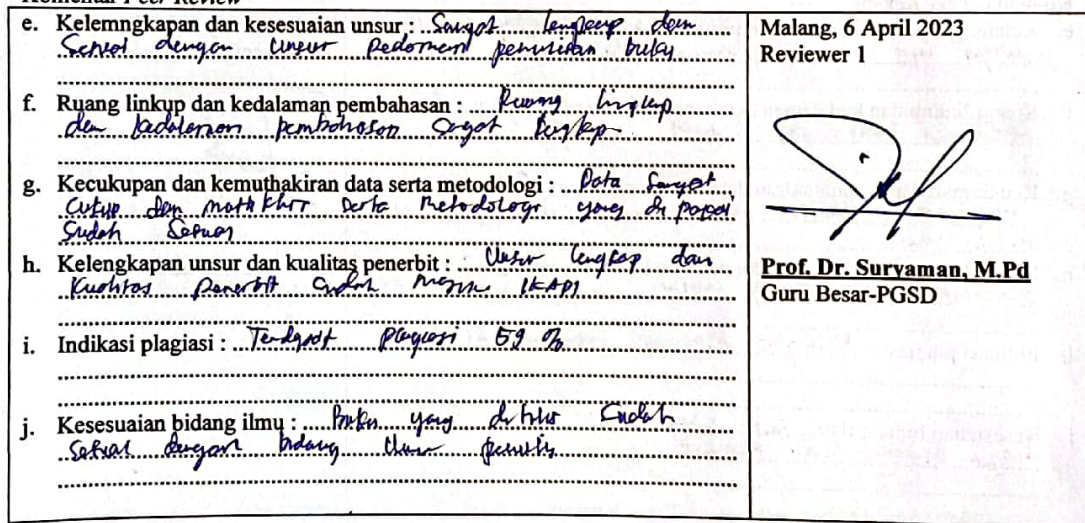 Komentar Peer Review
e. Kelemngkapan dan kesesuaian unsur : Sangat lengkap dan
Sesuai dengan unsur pedoman penulisan buku
f. Ruang linkup dan kedalaman pembahasan : Ruang lingkup
dan kedalaman pembahasan Sagat lengkap.
g. Kecukupan dan kemuthakiran data serta metodologi : Data Sangat
Cukup dan mothkhir Serta metodologi yang di papai
Sudah Sesuai
h. Kelengkapan unsur dan kualitas penerbit : Unsur lengkap dan
Kualitas penerbit Sudah IKAPI
i. Indikasi plagiasi : Terdapat plagiasi 59 %
j. Kesesuaian bidang ilmu : Buku yang ditulis Sudah
Sesuai dengan bidang ilmu penulis
Malang, 6 April 2023
Reviewer 1
Prof. Dr. Suryaman, M.Pd
Guru Besar-PGSD